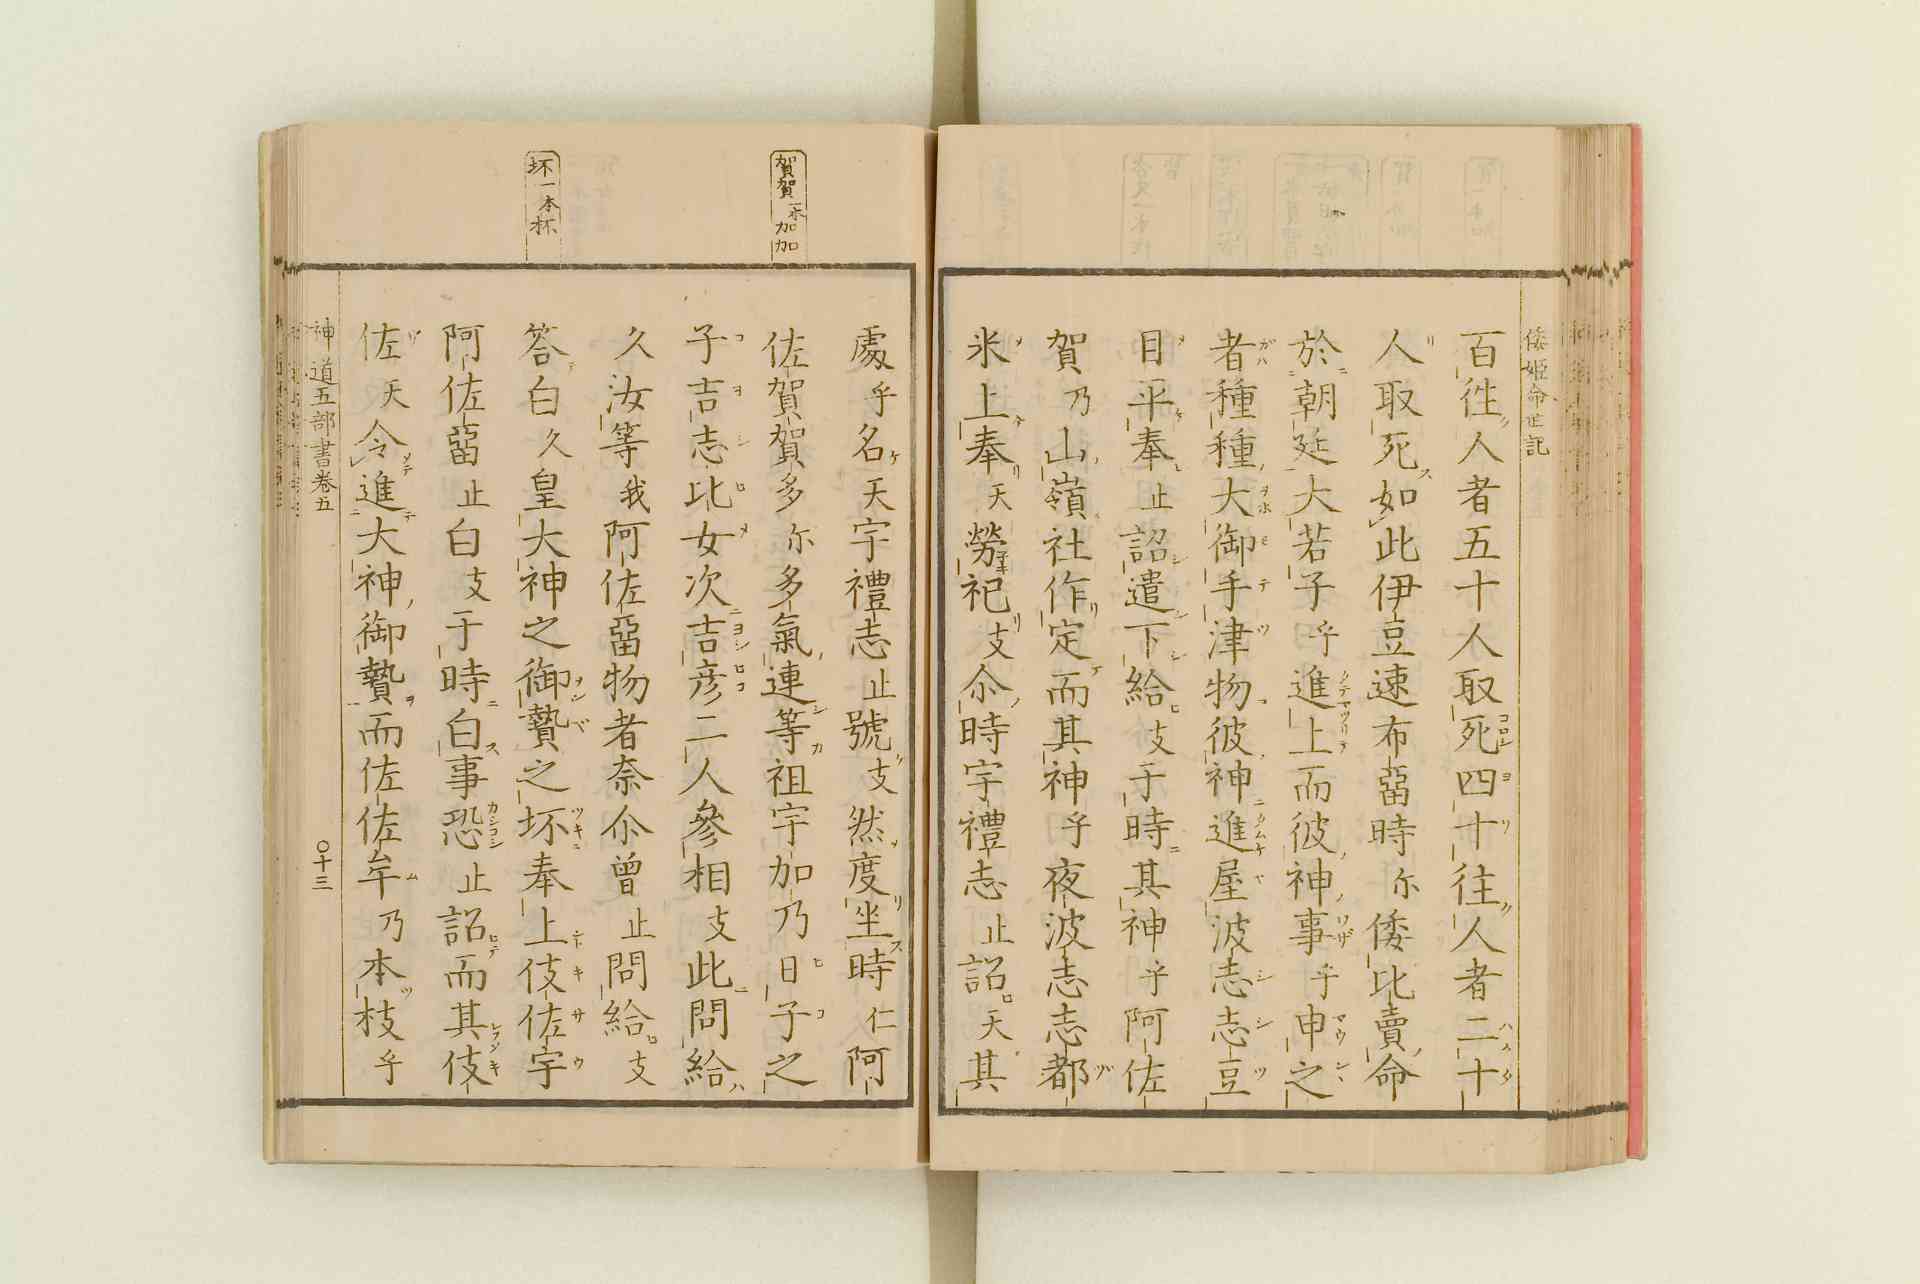 倭姫命世記
百徃人者五十人取死四十往人者二十
人取死如此伊豆速布畱時尓倭比賣命
於朝廷大若子乎進上而彼神事乎申之
者種種大御手津物彼神進屋波志志豆
目平奉止詔遣下給支于時其神乎阿佐
賀乃山嶺社作定而其神乎夜波志志都
米上奉天勞祀支尒時宇禮志止詔天其
賀賀一本加加
坏一本杯
處乎名天宇禮志止號支然度坐時仁阿
佐賀賀多尓多氣連等祖宇加乃日子之
子吉志比女次吉彦二人參相支此問給
久汝等我阿佐畱物者奈尒曾止問給支
答白久皇大神之御贄之坏奉上伎佐宇
阿佐畱止白支于時白事恐止詔而其伎
佐天令進大神御贄而佐佐牟乃木枝乎
神道五部書卷五
〇十三